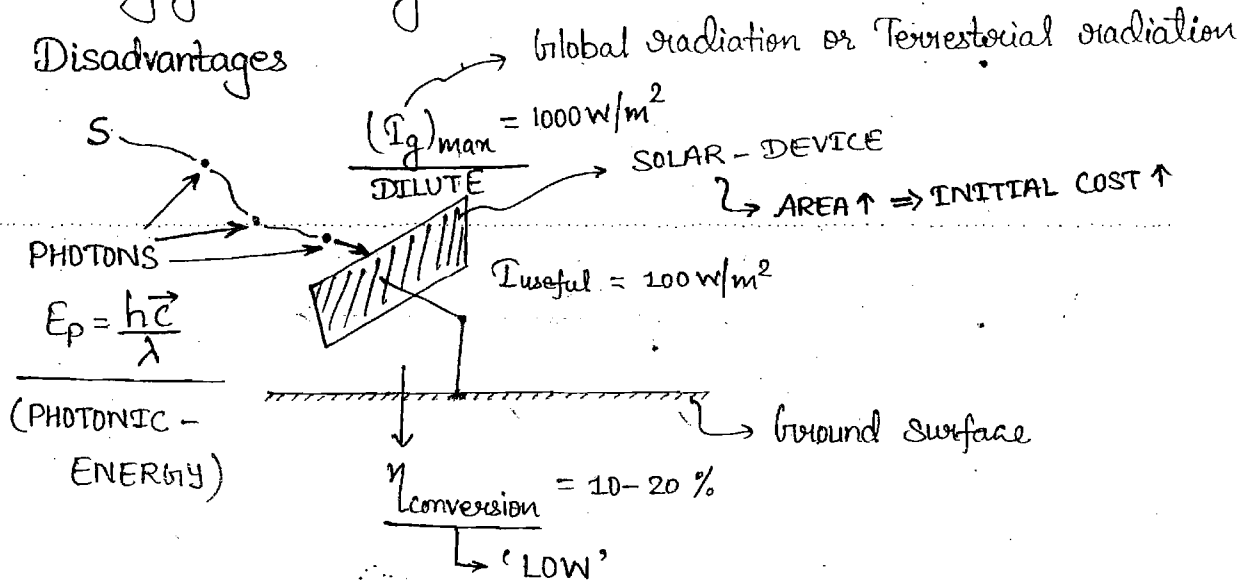 Disadvantages
Global radiation or Terrestorial radiation
S
(Ig)max = 1000 W/m²
DILUTE
SOLAR - DEVICE
↳ AREA↑ ⇒ INITIAL COST ↑
PHOTONS
Iuseful = 100 W/m²
Ep = hc⃗/λ
(PHOTONIC -
ENERGY)
Ground surface
ηconversion = 10-20 %
↳ 'LOW'